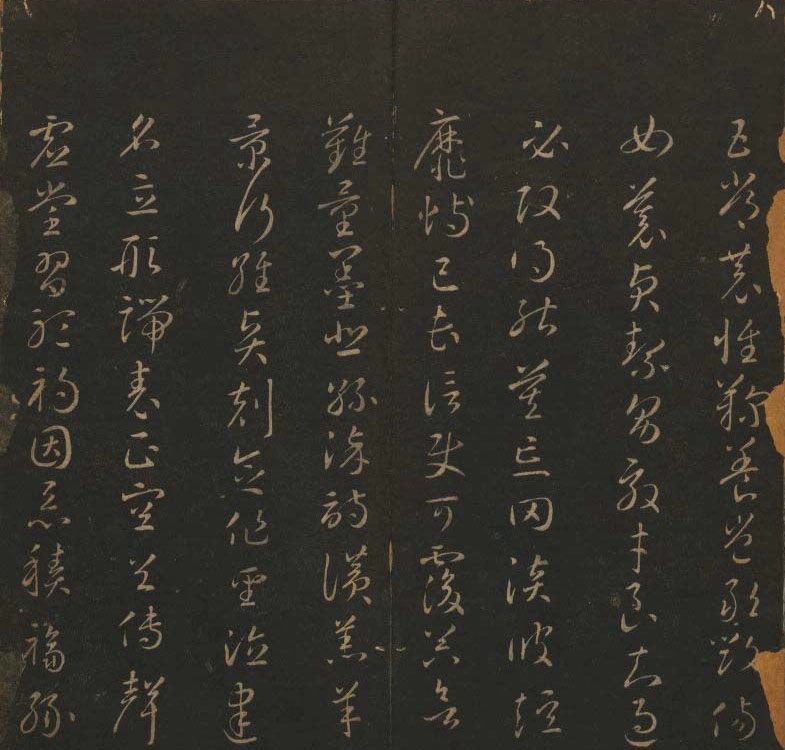 五常恭惟鞠養豈敢毀傷
女慕貞絜男效才良知過
必改得能莫忘罔談彼短
靡恃己長信使可覆器欲
難量墨悲絲染詩讚羔羊
景行維賢剋念作聖德建
名立形端表正空谷傳聲
虛堂習聽禍因惡積福緣